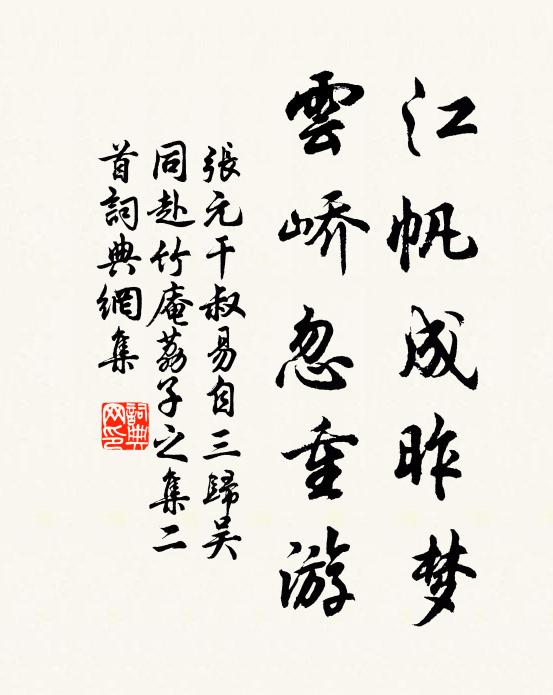 江帆成昨梦
雲峤忽重游
張元干叔易自三歸吴
同赴竹庵荔子之集二
首詞典網集
詞典
网印